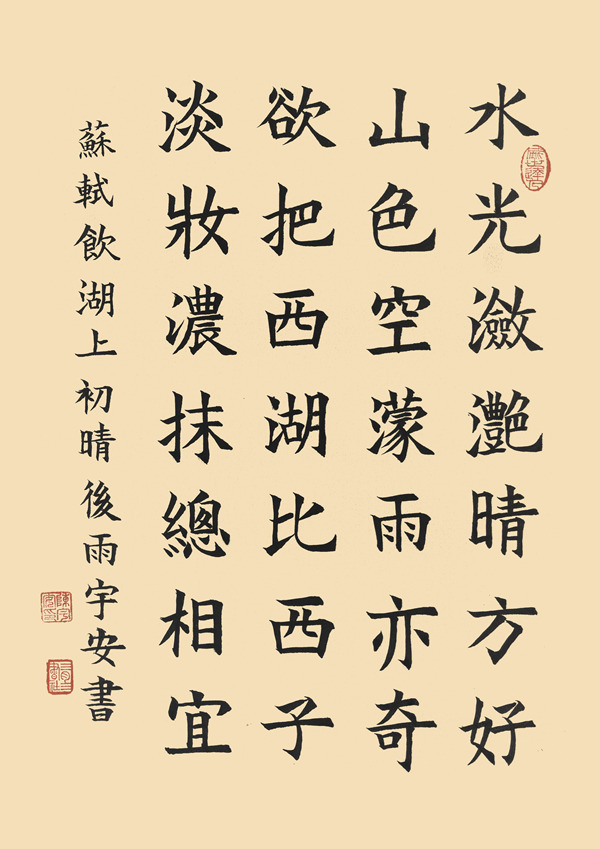 水光瀲灩晴方好
山色空濛雨亦奇
欲把西湖比西子
淡妝濃抹總相宜
蘇軾飲湖上初晴後雨宇安書